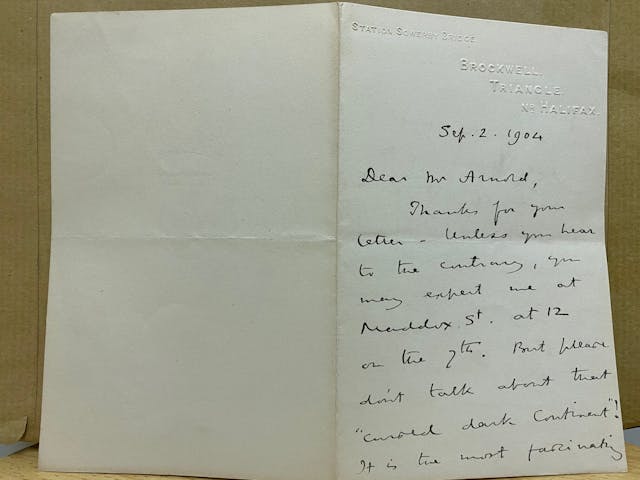 STATION SOWERBY BRIDGE.
BROCKWELL,
TRIANGLE.
NR HALIFAX.
Sep. 2. 1904
Dear Mr Arnold,
Thanks for your
letter - Unless you hear
to the contrary, you
may expect me at
Maddox St. at 12
on the 7th. But please
don't talk about that
"cursed dark Continent"!
It is the most fascinating